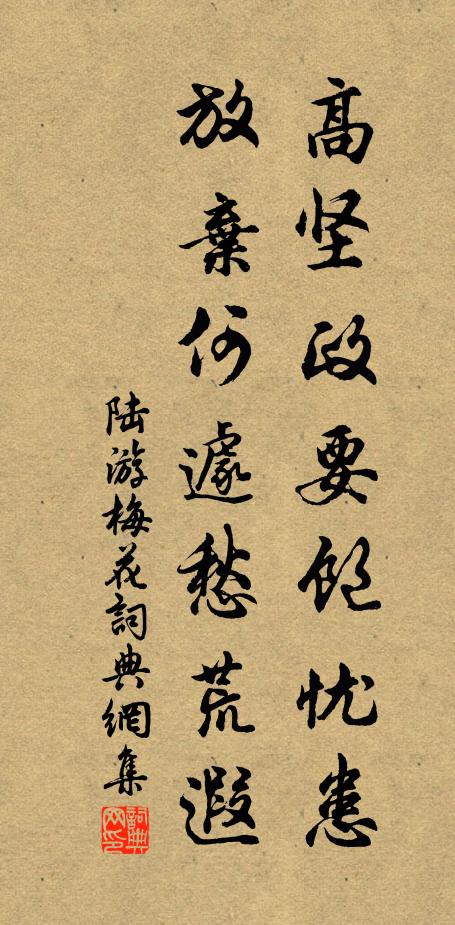 高坚政要饱忧患
放棄何遽愁荒遐
陆游梅花詞典網集
詞典网印